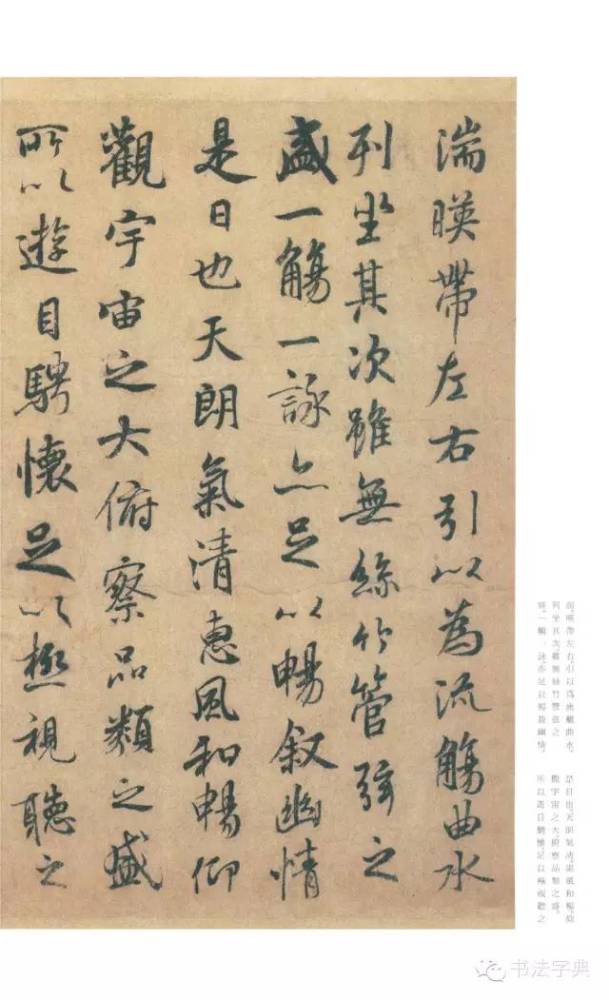 湍暎帶左右引以為流觴曲水
列坐其次雖無絲竹管弦之
盛一觴一詠亦足以暢叙幽情
是日也天朗氣清惠風和暢仰
觀宇宙之大俯察品類之盛
所以遊目騁懷足以極視聽之
湍暎帶左右引以為流觴曲水
列坐其次雖無絲竹管弦之
盛一觴一詠亦足以暢敘幽情
是日也天朗氣清惠風和暢仰
觀宇宙之大俯察品類之盛
所以遊目騁懷足以極視聽之
书法字典